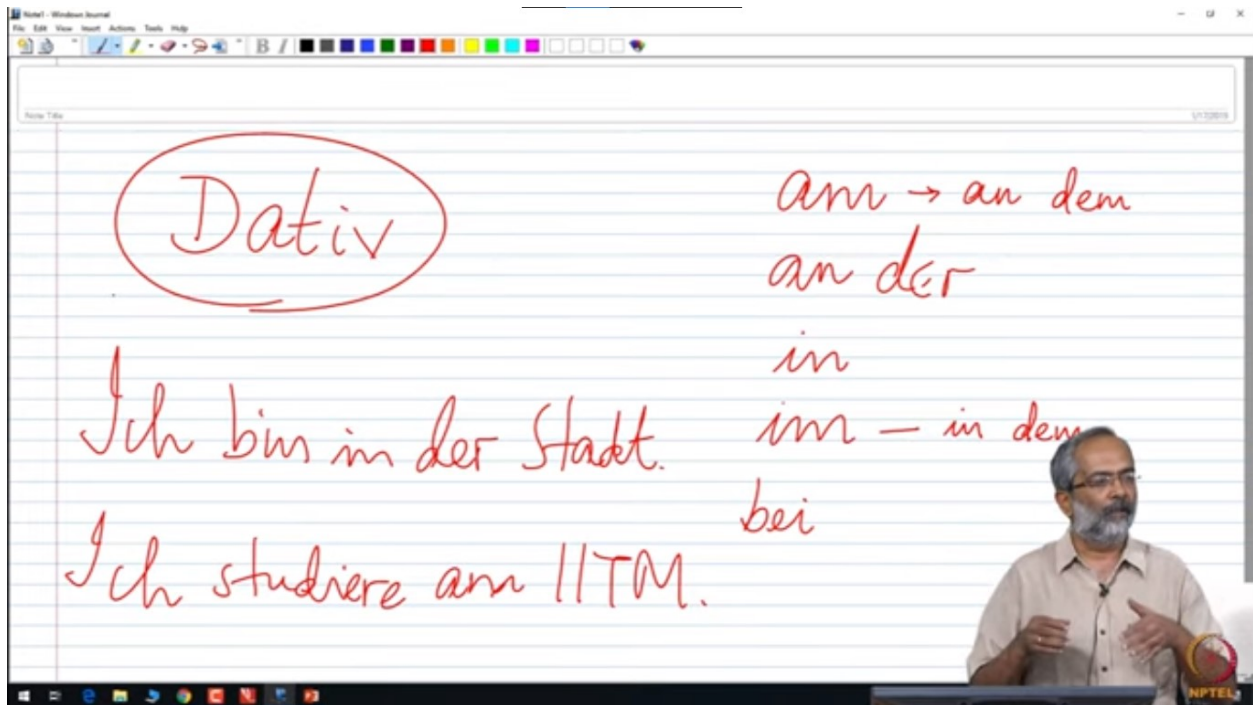 Note1 - Windows Journal
File Edit View Insert Actions Tools Help
B I
Note Title
1/17/2019
Dativ
Ich bin in der Stadt.
Ich studiere am IITM.
am → an dem
an der
in
im – in dem
bei
NPTEL